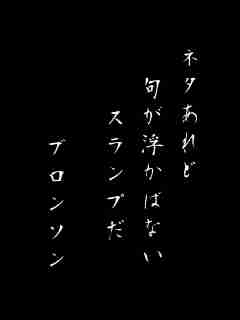 ネタあれど
句が浮かばない
スランプだ
ブロンソン